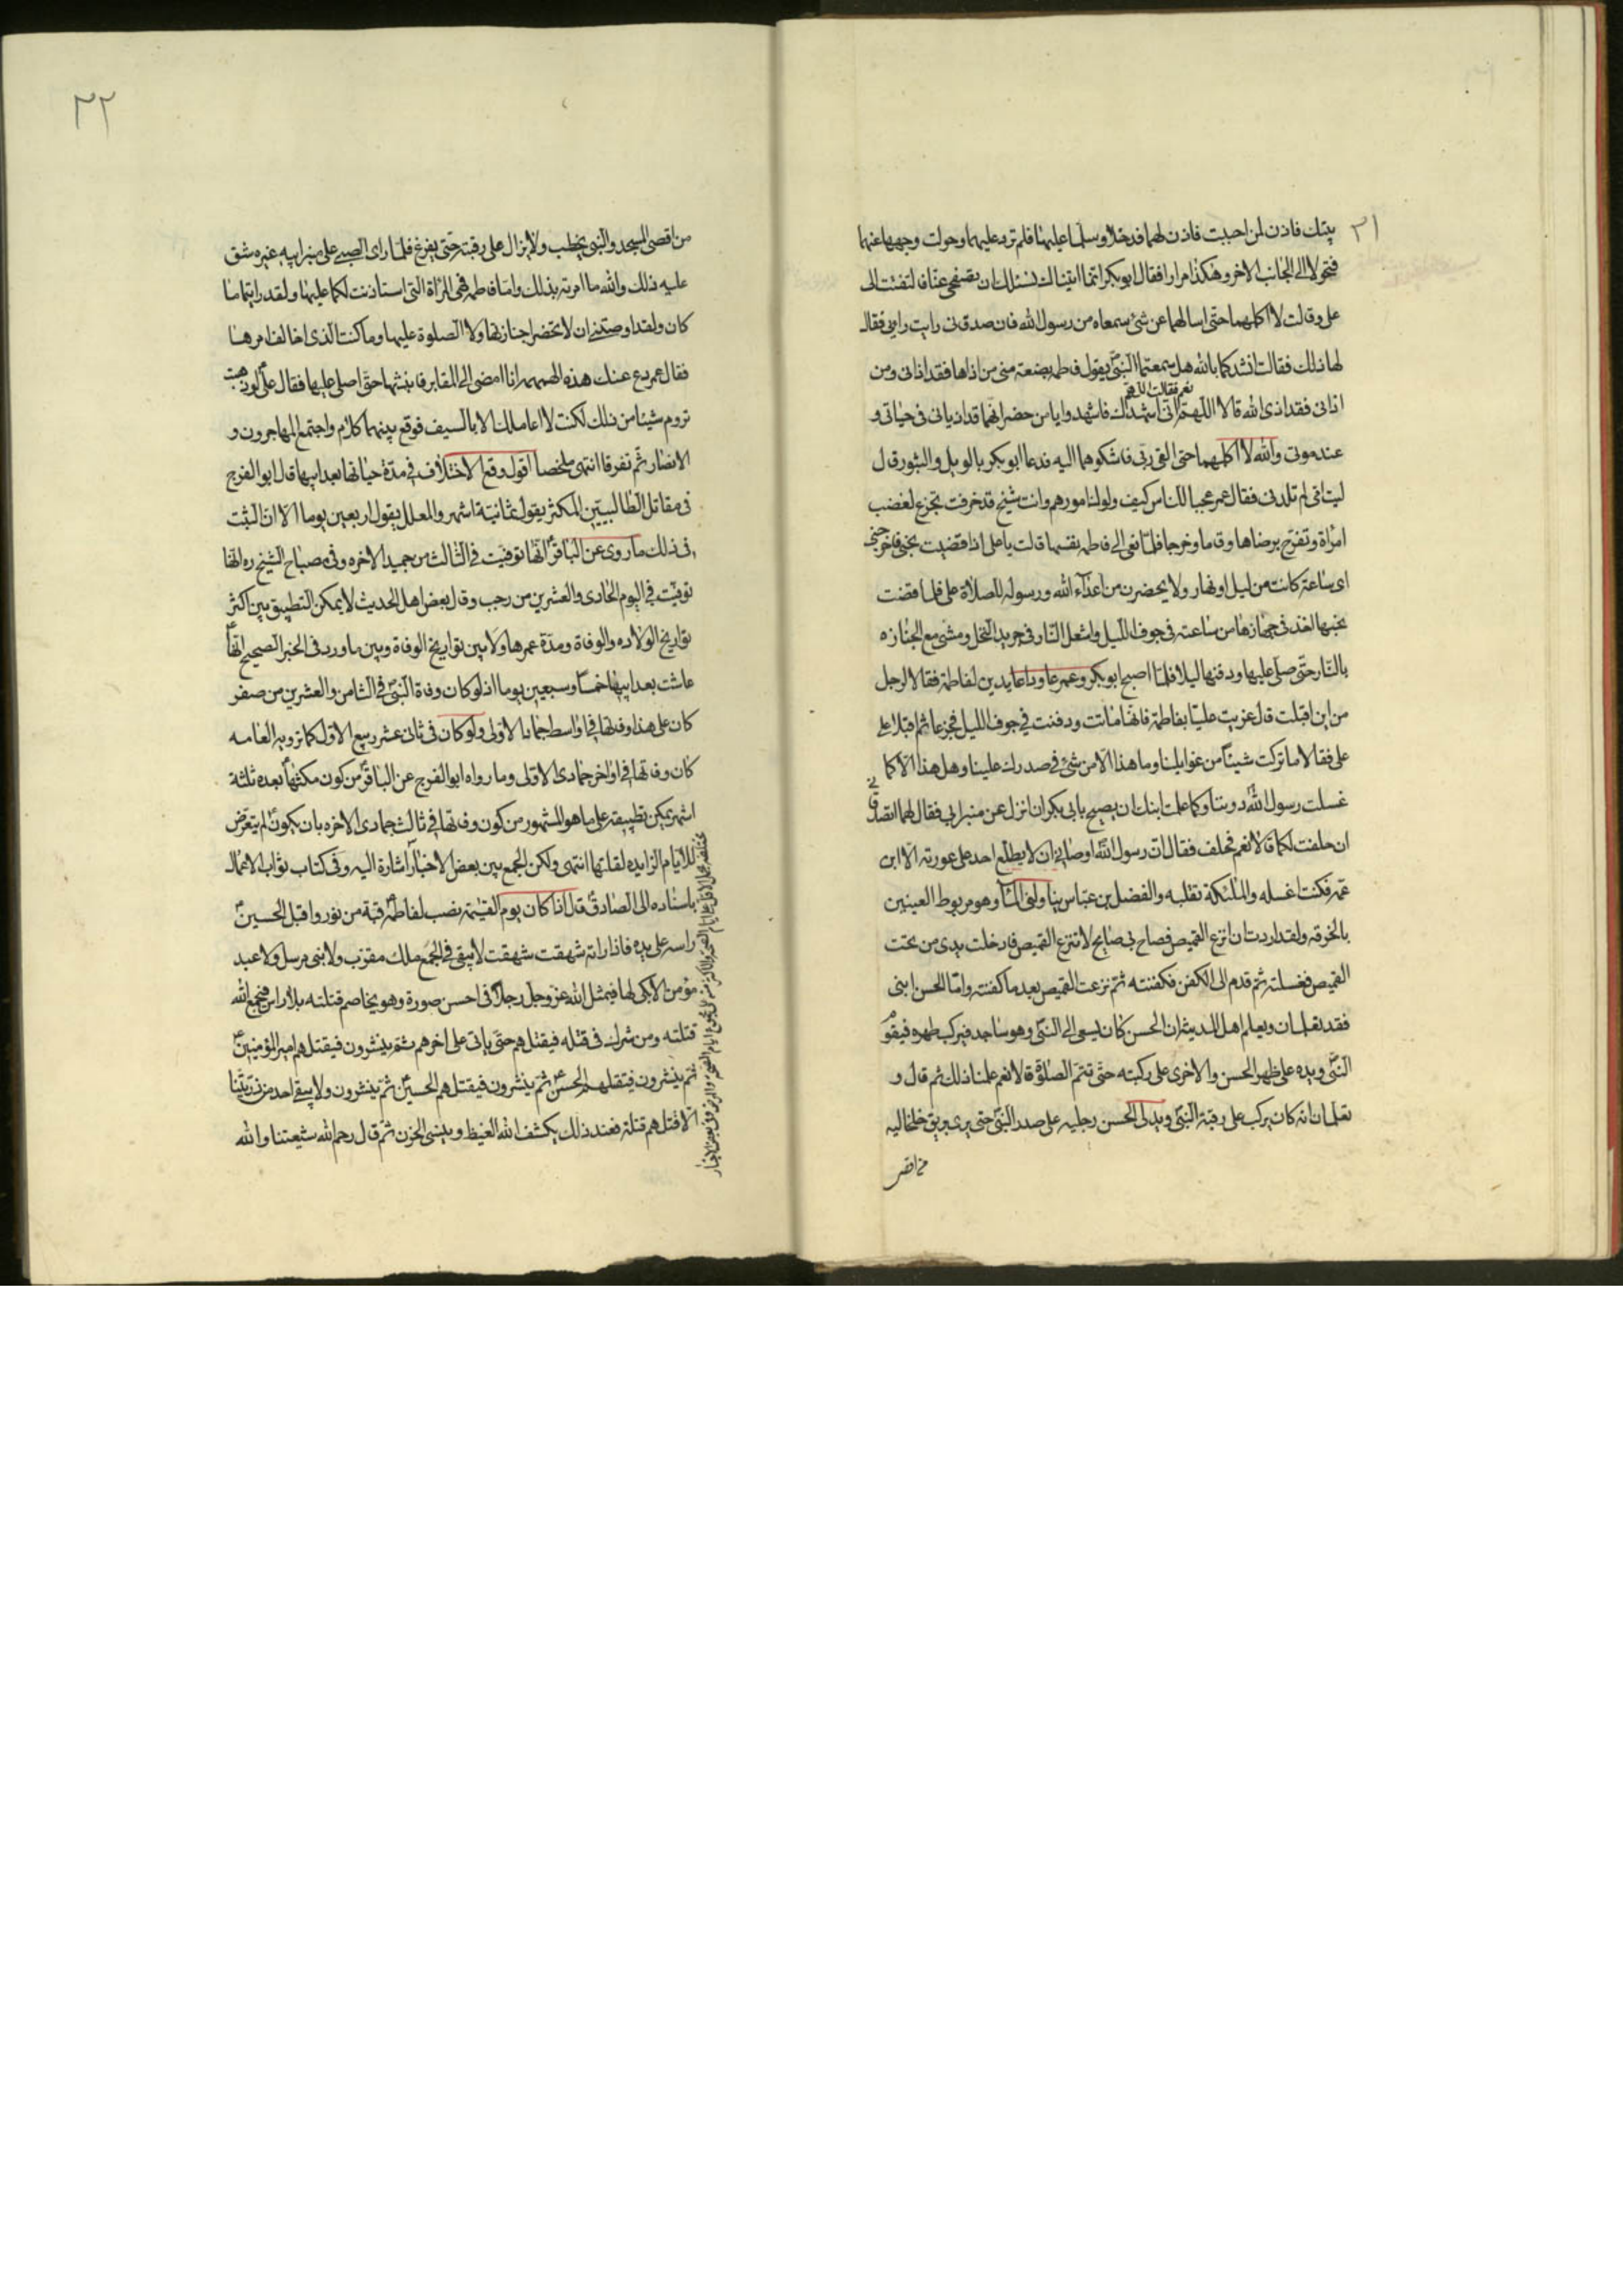 ٢١
بيتك فاذن لمن احببت فاذن لهما فدخلا وسلما عليها فلم ترد عليهما وحولت وجهها عنهما
فتحولا الى الجانب الاخر وهكذا مرارا فقال ابو بكر انما اتيناك نسئلك ان تصفحى عنا فالتفتت الى
على وقالت لا اكلمهما حتى اسالهما عن شئ سمعاه من رسول الله فان صدقنى رايت راى فقالا
لها ذلك فقالت انشدكما بالله هل سمعتما النبى يقول فاطمه بضعة منى من اذاها فقد اذانى ومن
نعم فقالت
اذانى فقد اذى الله قالا اللهم انى اشهدك فاشهدوا يا من حضر انهما قد اذيانى فى حياتى و
عند موتى والله لا اكلمهما حتى القى ربى فاشكوهما اليه فدعا ابو بكر بالويل والثبور قال
ليت امى لم تلدنى فقال عمر عجبا للناس كيف ولوك امورهم وانت شيخ قد خرفت تجزع لغضب
امراة وتفرح برضاها وقاما وخرجا فلما نعى الى فاطمه نفسها قالت يا على اذا قضيت نحبى فاخرجنى
اى ساعة كانت من ليل او نهار ولا يحضرن من اعداء الله ورسوله للصلاة على فلما قضت
نحبها اخذ فى جهازها من ساعته فى جوف الليل واشعل النار فى جريد النخل ومشى مع الجنازه
بالنار حتى صلى عليها ودفنها ليلا فلما اصبح ابو بكر وعمر عاودا عايدين لفاطمة فقالا لرجل
من اين اقبلت قال عزيت عليا بفاطمة فانها ماتت ودفنت فى جوف الليل فجزعا ثم اقبلا على
على فقالا ما تركت شيئا من غوايلنا وما هذا الا من شئ فى صدرك علينا وهل هذا الا كما
غسلت رسول الله دوننا وكما علمت ابنك ان يصيح بابى بكر ان انزل عن منبر ابى فقال لهما اتصدقانى
ان حلفت لكما قالا نعم فحلف فقال ان رسول الله اوصانى ان لا يطلع احد على عورته الا ابن
عمه فكنت اغسله والملئكة تقلبه والفضل بن عباس يناولنى الماء وهو مربوط العينين
بالخرقه ولقد اردت ان انزع القميص فصاح بى صايح لا تنزع القميص فادخلت يدى من تحت
القميص فغسلته ثم قدم الى الكفن فكفنته ثم نزعت القميص بعد ما كفنته واما الحسن ابنى
فقد تعلمان ويعلم اهل المدينة ان الحسن كان يسعى الى النبى وهو ساجد فيركب ظهره فيقوم
النبى ويده على ظهر الحسن والاخرى على ركبته حتى تتم الصلوة قالا نعم علمنا ذلك ثم قال و
تعلمان انه كان يركب على رقبة النبى ويدلى الحسن رجليه على صدر النبى حتى يرى بريق خلخاليه
من اقصى
٢٢
من اقصى المسجد والنبى يخطب ولا يزال على رقبته حتى يفرغ فلما راى الصبى على منبر ابيه غيره شق
عليه ذلك والله ما امرته بذلك واما فاطمه فهى المراة التى استاذنت لكما عليها ولقد رايتما ما
كان ولقد اوصتنى ان لا تحضرا جنازتها ولا الصلوة عليها وما كنت الذى اخالف امرها
فقال عمر دع عنك هذه الهمهمه انا امضى الى المقابر فانبشها حتى اصلى عليها فقال على لو ذهبت
تروم شيئا من ذلك لكنت لا اعاملك الا بالسيف فوقع بينهما كلام واجتمع المهاجرون و
الانصار ثم تفرقا انتهى ملخصا اقول وقع الاختلاف فى مدة حياتها بعد ابيها قال ابو الفرج
فى مقاتل الطالبيين المكثر يقول ثمانية اشهر والمعلل يقول اربعين يوما الا ان الثبت
فى ذلك ما روى عن الباقر انها توفيت فى الثالث من جميد الاخره وفى مصباح الشيخ ره انها
توفيت فى اليوم الحادى والعشرين من رجب وقال بعض اهل الحديث لا يمكن التطبيق بين اكثر
تواريخ الولاده والوفاة ومدة عمرها ولا بين تواريخ الوفاة وبين ما ورد فى الخبر الصحيح انها
عاشت بعد ابيها خمسا وسبعين يوما اذ لو كان وفاة النبى فى الثامن والعشرين من صفر
كان على هذا وفاتها فى اواسط جمادى الاولى ولو كان فى ثانى عشر ربيع الاول كما ترويه العامه
كان وفاتها فى اواخر جمادى الاولى وما رواه ابو الفرج عن الباقر من كون مكثها بعده ثلثة
اشهر يمكن تطبيقه على ما هو المشهور من كون وفاتها فى ثالث جمادى الاخره بان يكون لم يتعرض
للايام الزايده لقلتها انتهى ولكن الجمع بين بعض الاخبار اشارة اليه وفى كتاب ثواب الاعمال
باسناده الى الصادق قال اذا كان يوم القيمة نصب لفاطمه قبة من نور واقبل الحسين
راسه على يده فاذا راته شهقت شهقت لا يبقى فى الجمع ملك مقرب ولا نبى مرسل ولا عبد
مؤمن الا بكى لها فيمثل الله عز وجل رجلا فى احسن صورة وهو يخاصم قتلته بلا راس فيجمع الله
قتلته ومن شرك فى قتله فيقتلهم حتى ياتى على اخرهم ثم ينشرون فيقتلهم امير المؤمنين
ثم ينشرون فيقتلهم الحسن ثم ينشرون فيقتلهم الحسين ثم ينشرون ولا يبقى احد من ذريتنا
الا قتلهم قتلة فعند ذلك يكشف الله الغيظ وينسى الحزن ثم قال رحم الله شيعتنا والله